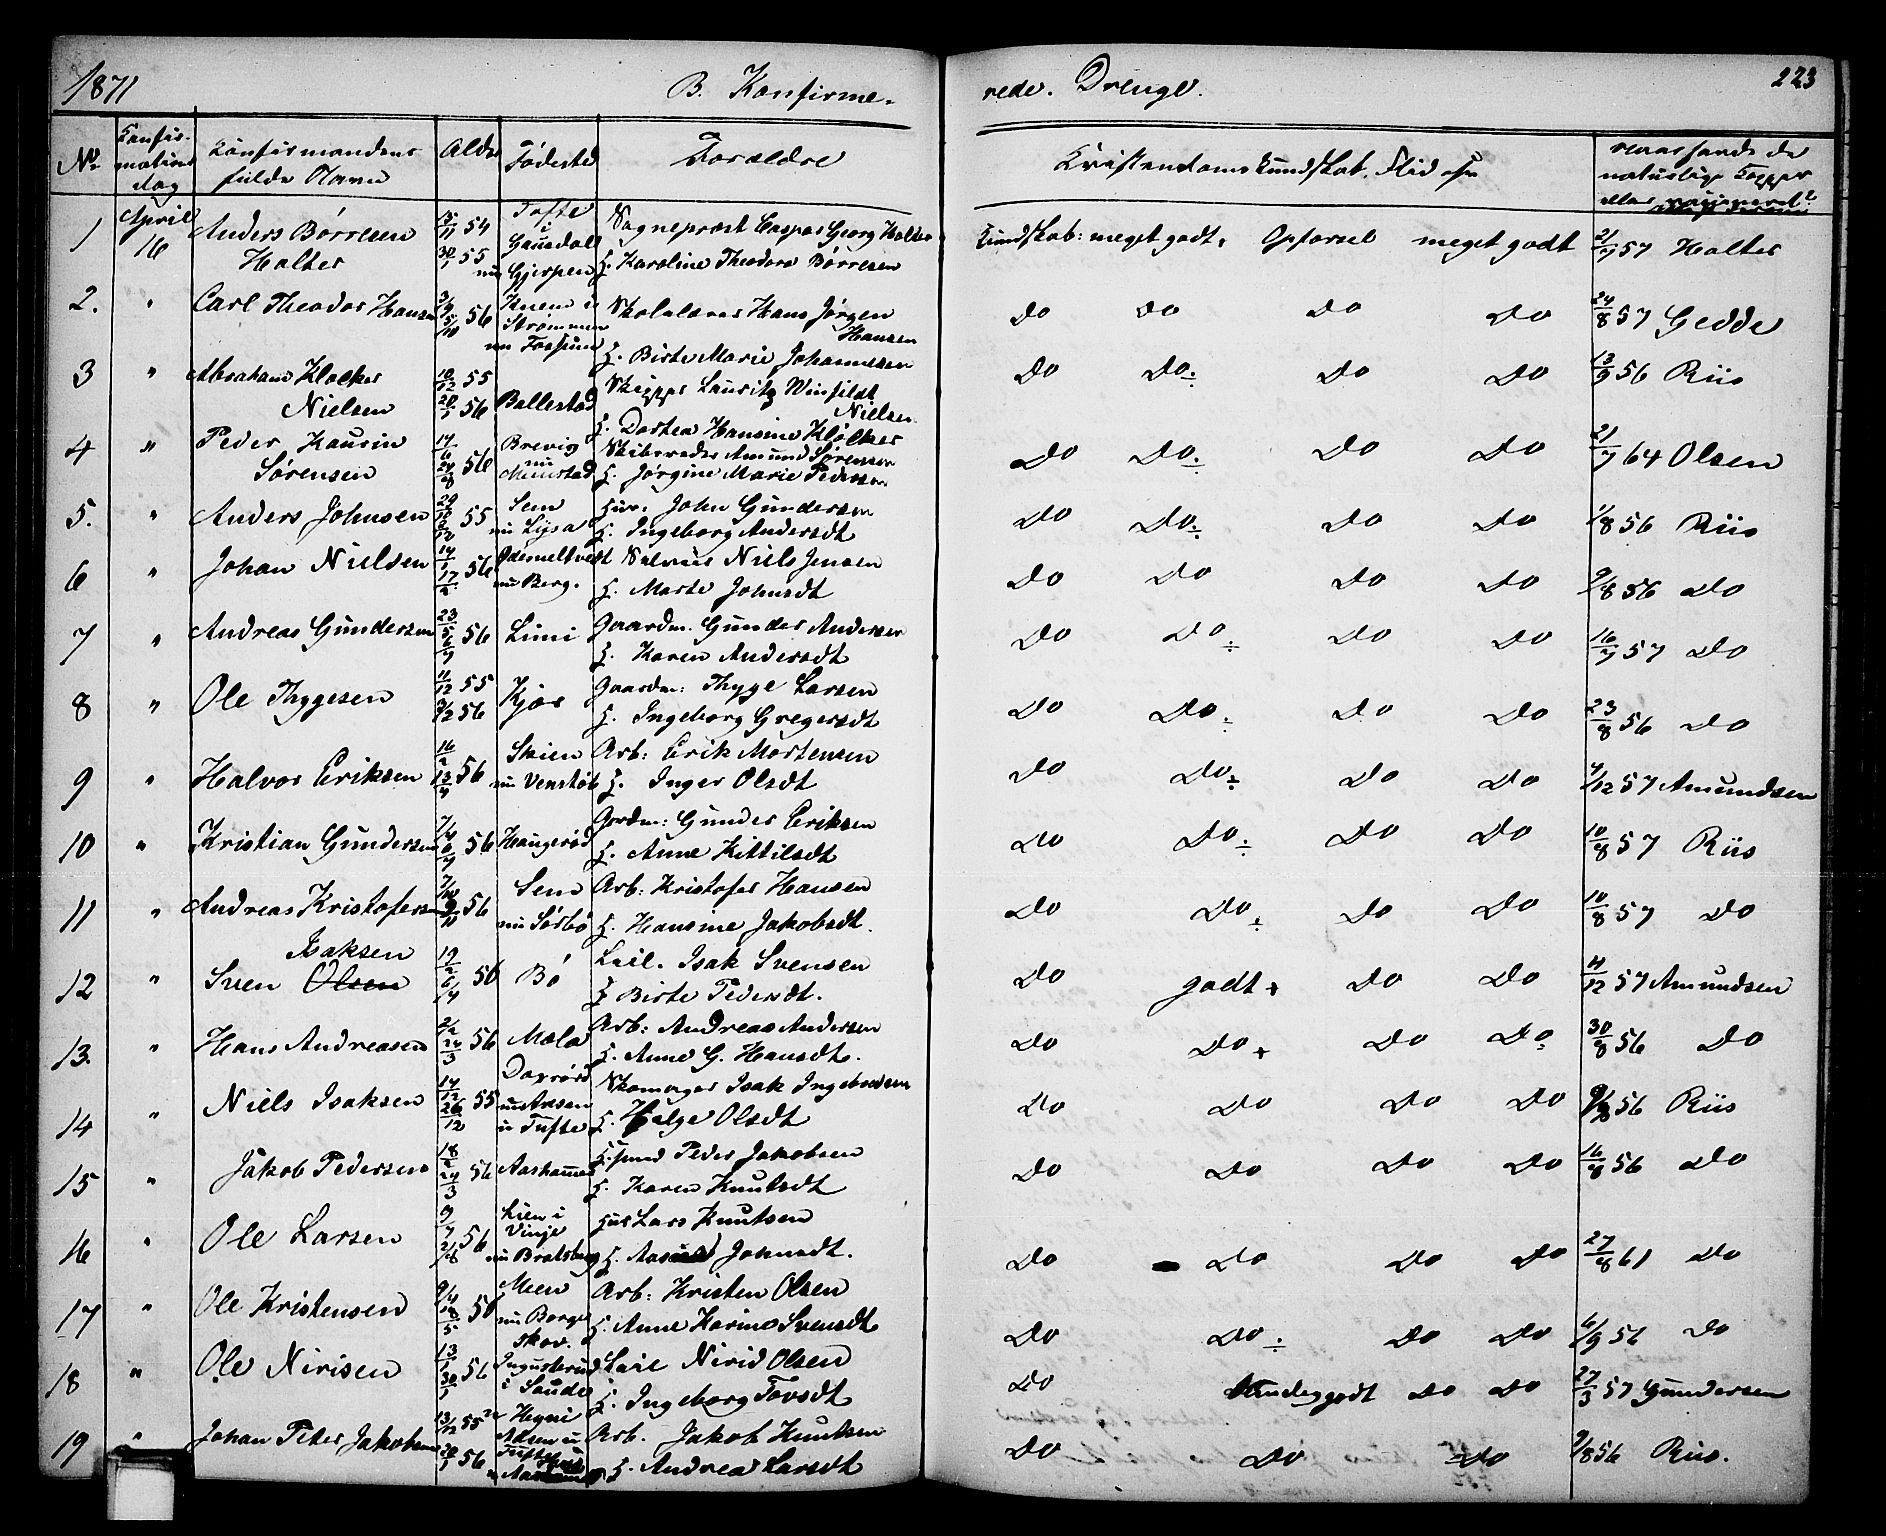 1871 B. Konfirme- rede. Drenge. 223
No. Konfirmations dag Konfirmandens fulde Navn Alder Fødested Forældre Kristendomskundskab, Flid osv. naar havde de naturlige Kopper eller vaccineret?
1 April 16 Anders Børresen Holter 15/11 54 30/1 55 Tofte i Gausdal nu Gjerpen Sognepræst Caspar Georg Holter H. Karoline Theodora Børresen Kundskab: meget godt. Opførsel meget godt 2/7 57 Holter
2. " Carl Theodor Hansen 3/9 5/10 56 Strømmen nu Fossum Skolelærer Hans Jørgen Hansen H. Birte Marie Johannesen Do Do Do Do 24/8 57 Gedde
3 " Abraham Klocker Nielsen 10/12 55 20/1 56 Ballestad Skipper Lauritz Winfeldt Nielsen H. Dortea Hansine Klocker Do Do ÷ Do Do 13/9 56 Riis
4 " Peder Kausin Sørensen 14/6 24/8 56 Brevig nu Meenstad Skibsreder Amund Sørensen H. Jørgine Marie Pedersen Do Do ÷ Do Do 21/7 64 Olsen
5. " Anders Johnsen 29/10 55 Sem nu Lysa John Gundersen H. Ingeborg Andersdt Do Do ÷ Do Do 1/8 56 Riis
6 " Johan Nielsen 14/1 17/2 56 nu Berg. Niels Jensen H. Marte Johnsdt Do Do Do Do 9/8 56 Do
7 " Andreas Gundersen 23/5 6/7 56 Limi Gaardm. Gunder Andersen H. Karen Andersdt Do Do ÷ Do Do 16/7 57 Do
8 " Ole Thygesen 11/12 55 3/2 56 Kjær Gaardm: Thyge Larsen H. Ingeborg Gregersdt Do Do ÷ Do Do 23/8 56 Do
9 " Halvor Eriksen 16/2 13/4 56 Skien nu Venstøb Arb: Erik Mortensen H. Inger Olsdt Do Do ÷ Do Do 4/12 57 Amundsen
10 " Kristian Gundersen 7/4 6/7 56 Haugerød Gaardm: Gunder Eriksen H. Anne Kittilsdt Do Do ÷ Do Do 10/8 57 Riis
11 " Andreas Kristofersen 7/10 9/11 56 Sem nu Sørbø Arb: Kristofer Hansen H. Hansine Jakobsdt. Do Do ÷ Do Do 10/8 57 Do
12 " Sven Olsen Isaksen 19/2 6/4 56 Bø Leil. Isak Svensen H Birte Pedersdt. Do godt + Do Do 4/12 57 Amundsen
13. " Hans Andreasen 2/2 24/3 56 Mæla Arb: Andreas Andersen H. Anne G. Hansdt. Do Do + Do Do 30/8 56 Do
14 " Niels Isaksen 14/12 26/12 55 i Tufte Skomager Isak Ingebretsen H. Helge Olsdt Do Do Do Do 9/8 56 Riis
15 " Jakob Pedersen 18/2 24/3 56 Aashammer Husmd Peder Jakobsen H. Karen Knutsdt Do Do Do Do 16/8 56 Do
16 " Ole Larsen 9/7 56 Lien i Vinje nu Bratsberg Lars Knutsen H. Johnsdt. Do Do Do Do 27/8 61 Do
17 " Ole Kristensen 9/4 18/5 56 Meen nu Borge skov. Arb: Kristen Olsen H. Anne Karine Svensdt Do Do ÷ Do Do 6/9 56 Do
18 " Ole Nirisen 13/1 30/1 56 i Saude Leil Nirid Olsen H. Ingeborg Tovsdt Do godt Do Do 27/3 57 Gundersen
19 " Johan Peder Jakobsen 13/12 55 20/1 56 Arb. Jakob Knutsen H. Andrea Larsdt Do Do Do 9/8 56 Riis.